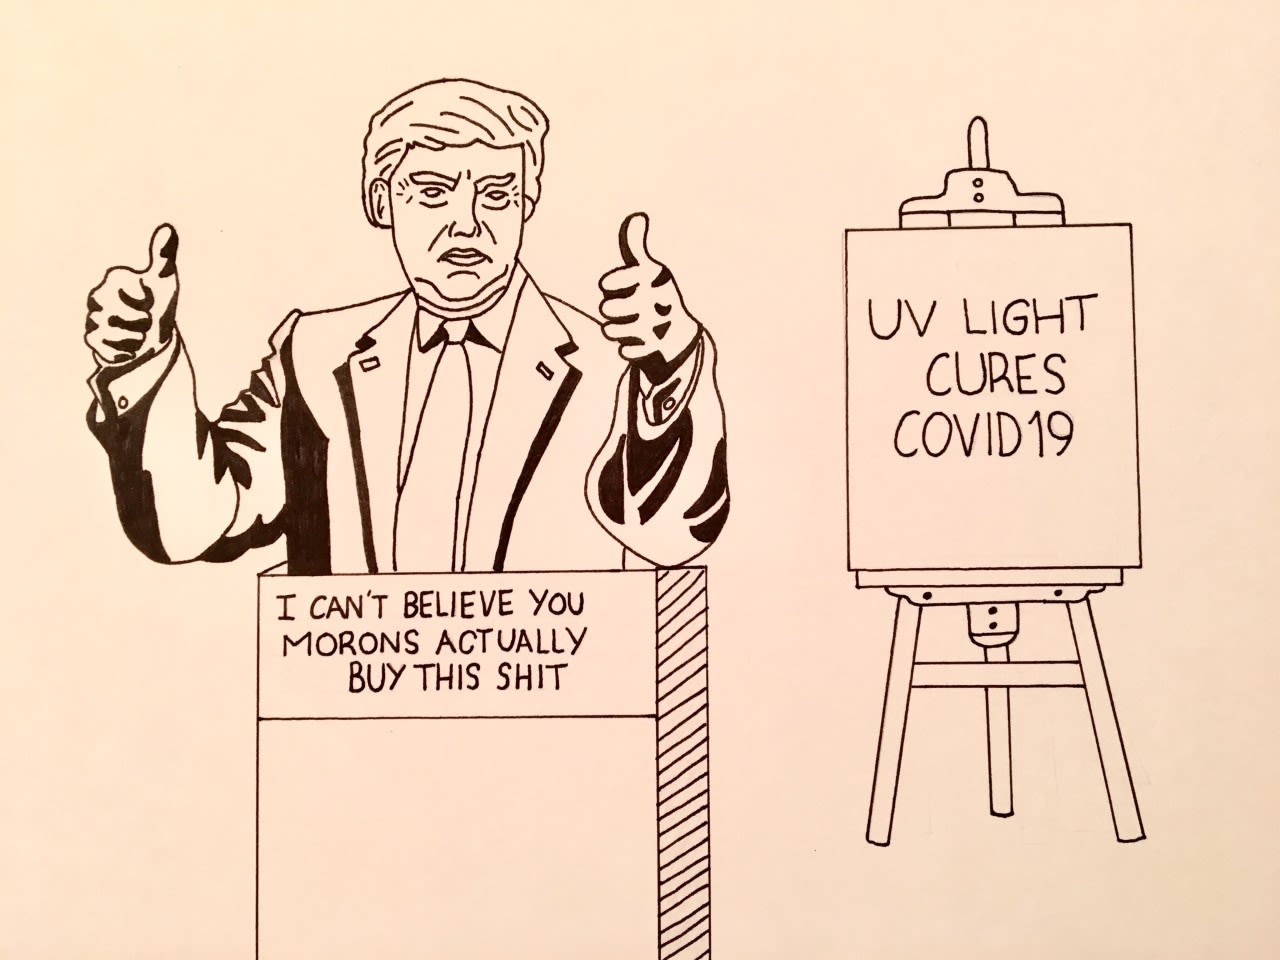 I CAN'T BELIEVE YOU
MORONS ACTUALLY
BUY THIS SHIT
UV LIGHT
CURES
COVID19